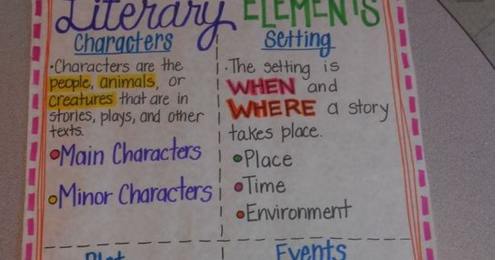 Literary ELEMENTS
Characters
•Characters are the
people, animals, or
creatures that are in
stories, plays, and other
texts.
•Main Characters
•Minor Characters
Setting
•The setting is
WHEN and
WHERE a story
takes place.
•Place
•Time
•Environment
Plot
Events